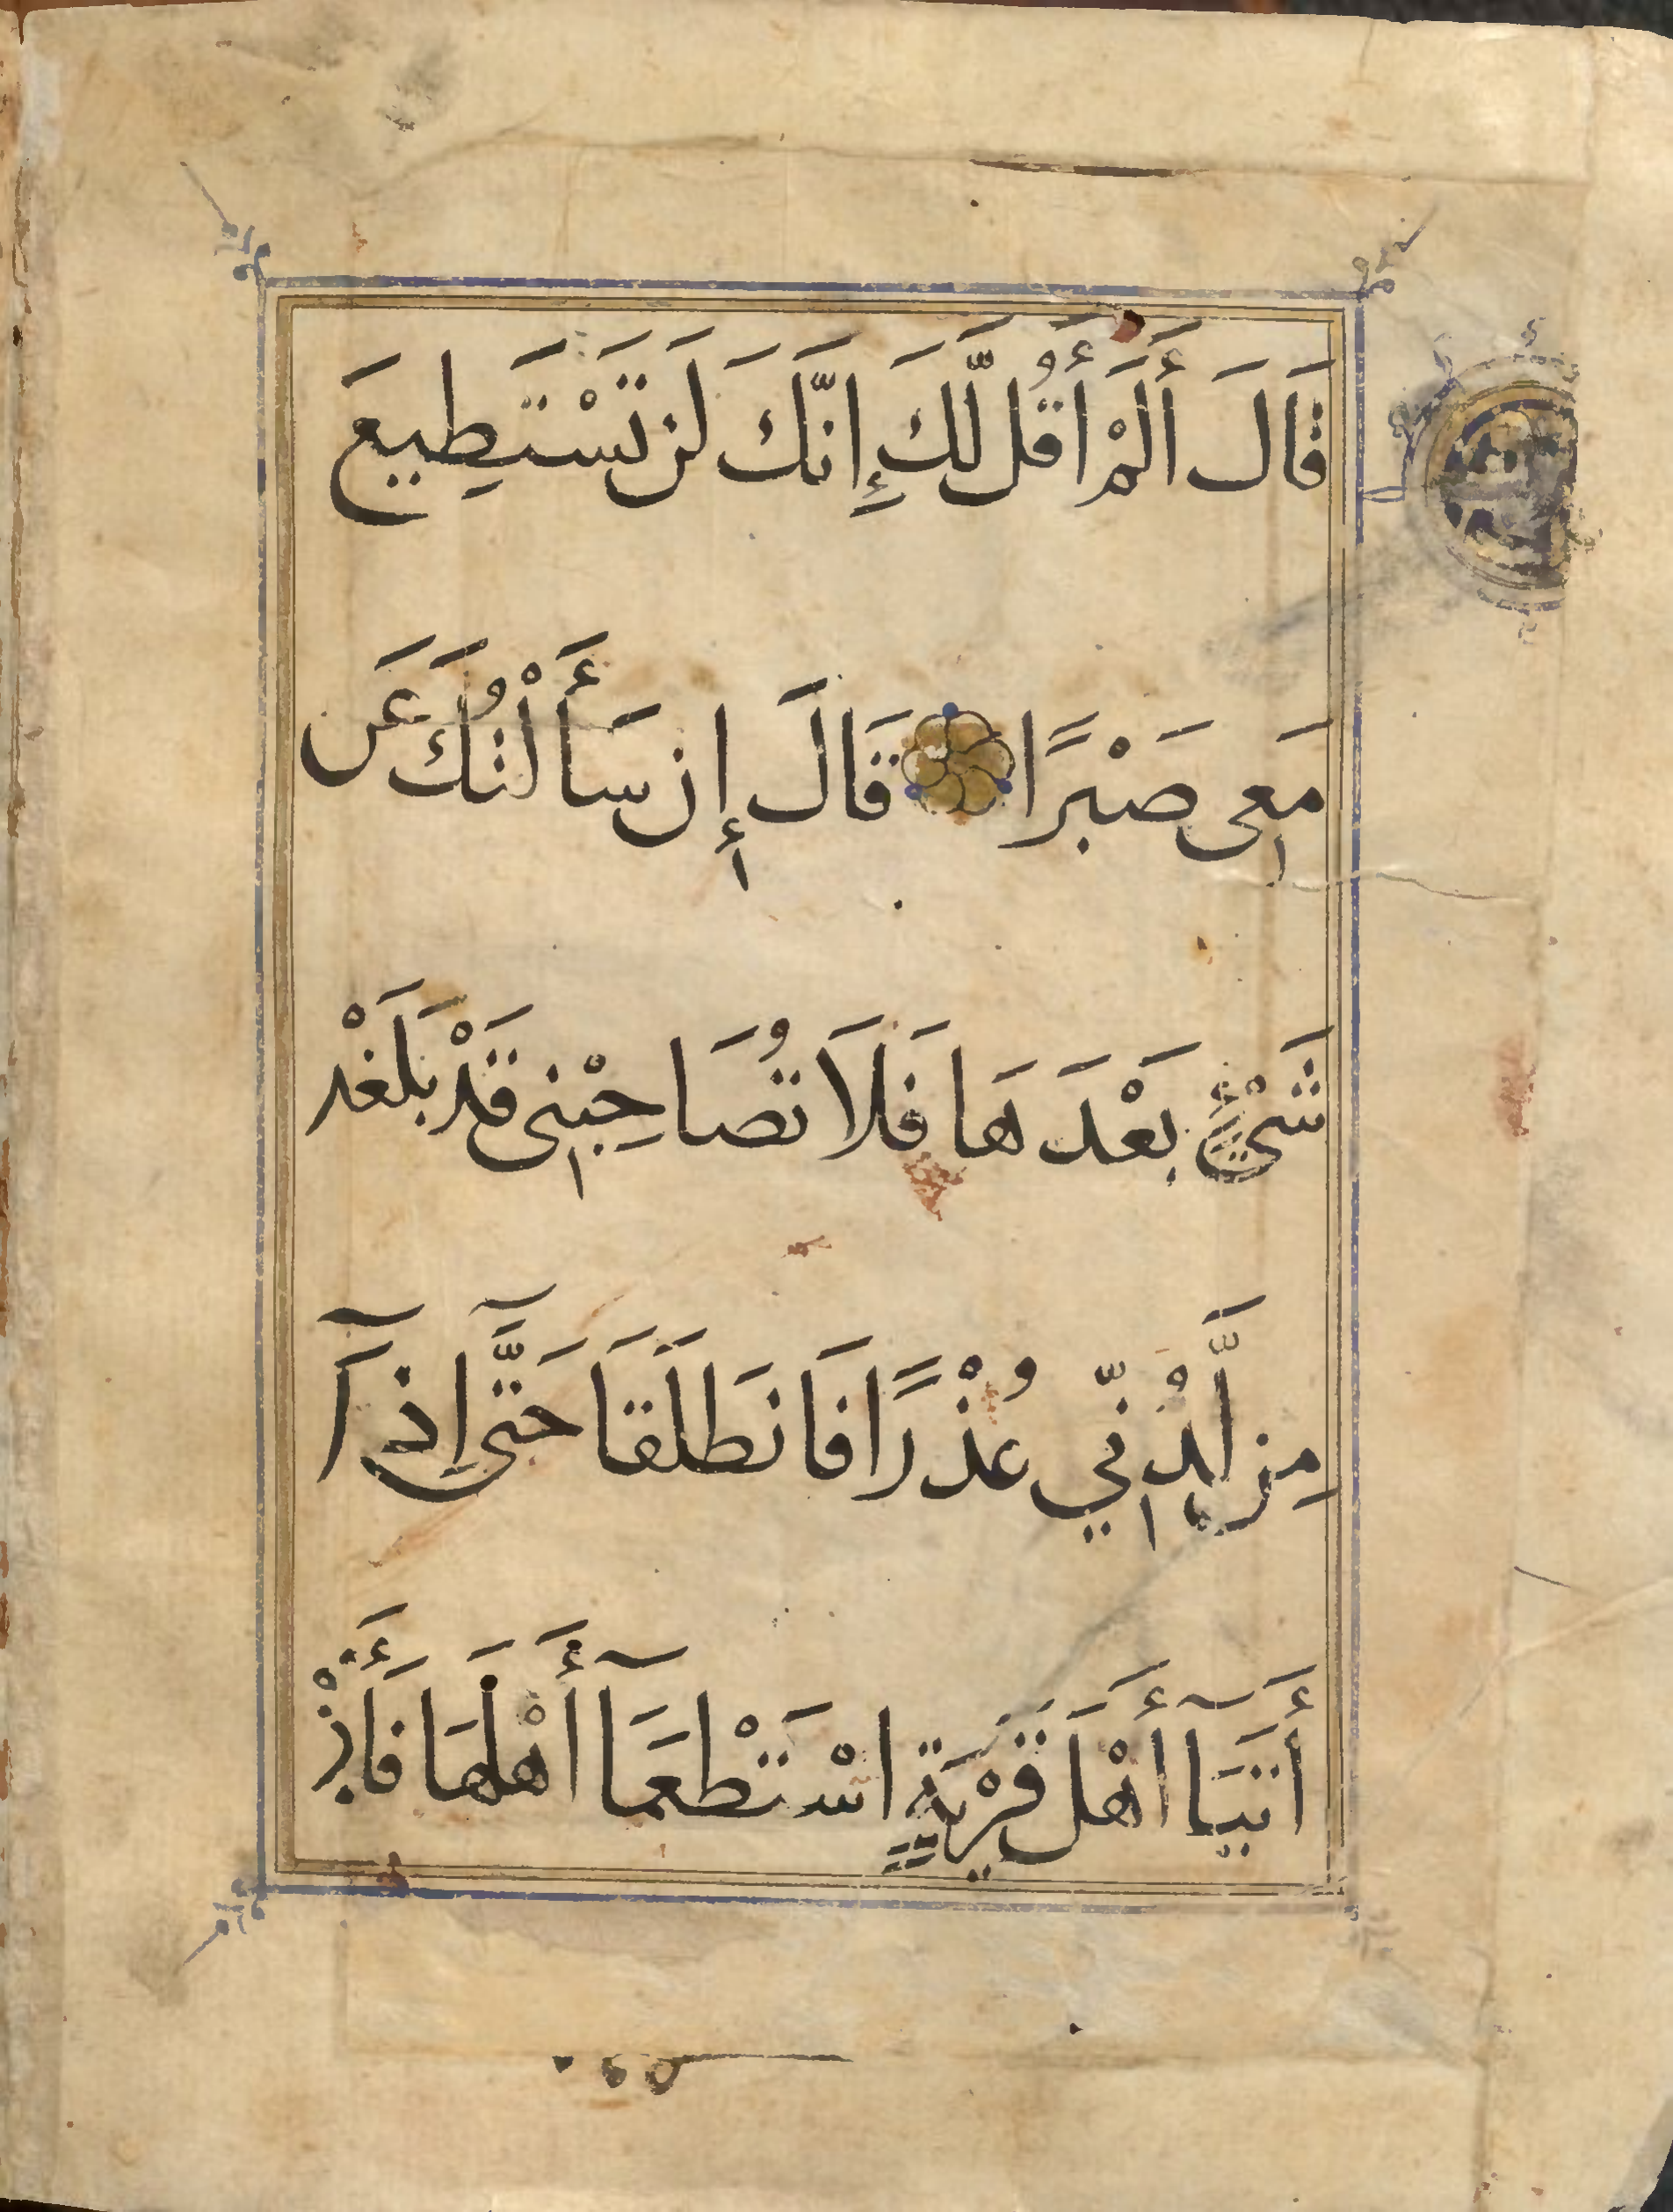 قَالَ أَلَمْ أَقُل لَّكَ إِنَّكَ لَن تَسْتَطِيعَ
مَعِى صَبْرًا قَالَ إِن سَأَلْتُكَ عَن
شَىْءٍ بَعْدَهَا فَلَا تُصَاحِبْنِى قَدْ بَلَغْد
مِن لَّدُنِّي عُذْرًا فَانطَلَقَا حَتَّىٓ إِذَآ
أَتَيَآ أَهْلَ قَرْيَةٍ اسْتَطْعَمَآ أَهْلَهَا فَأَبَ